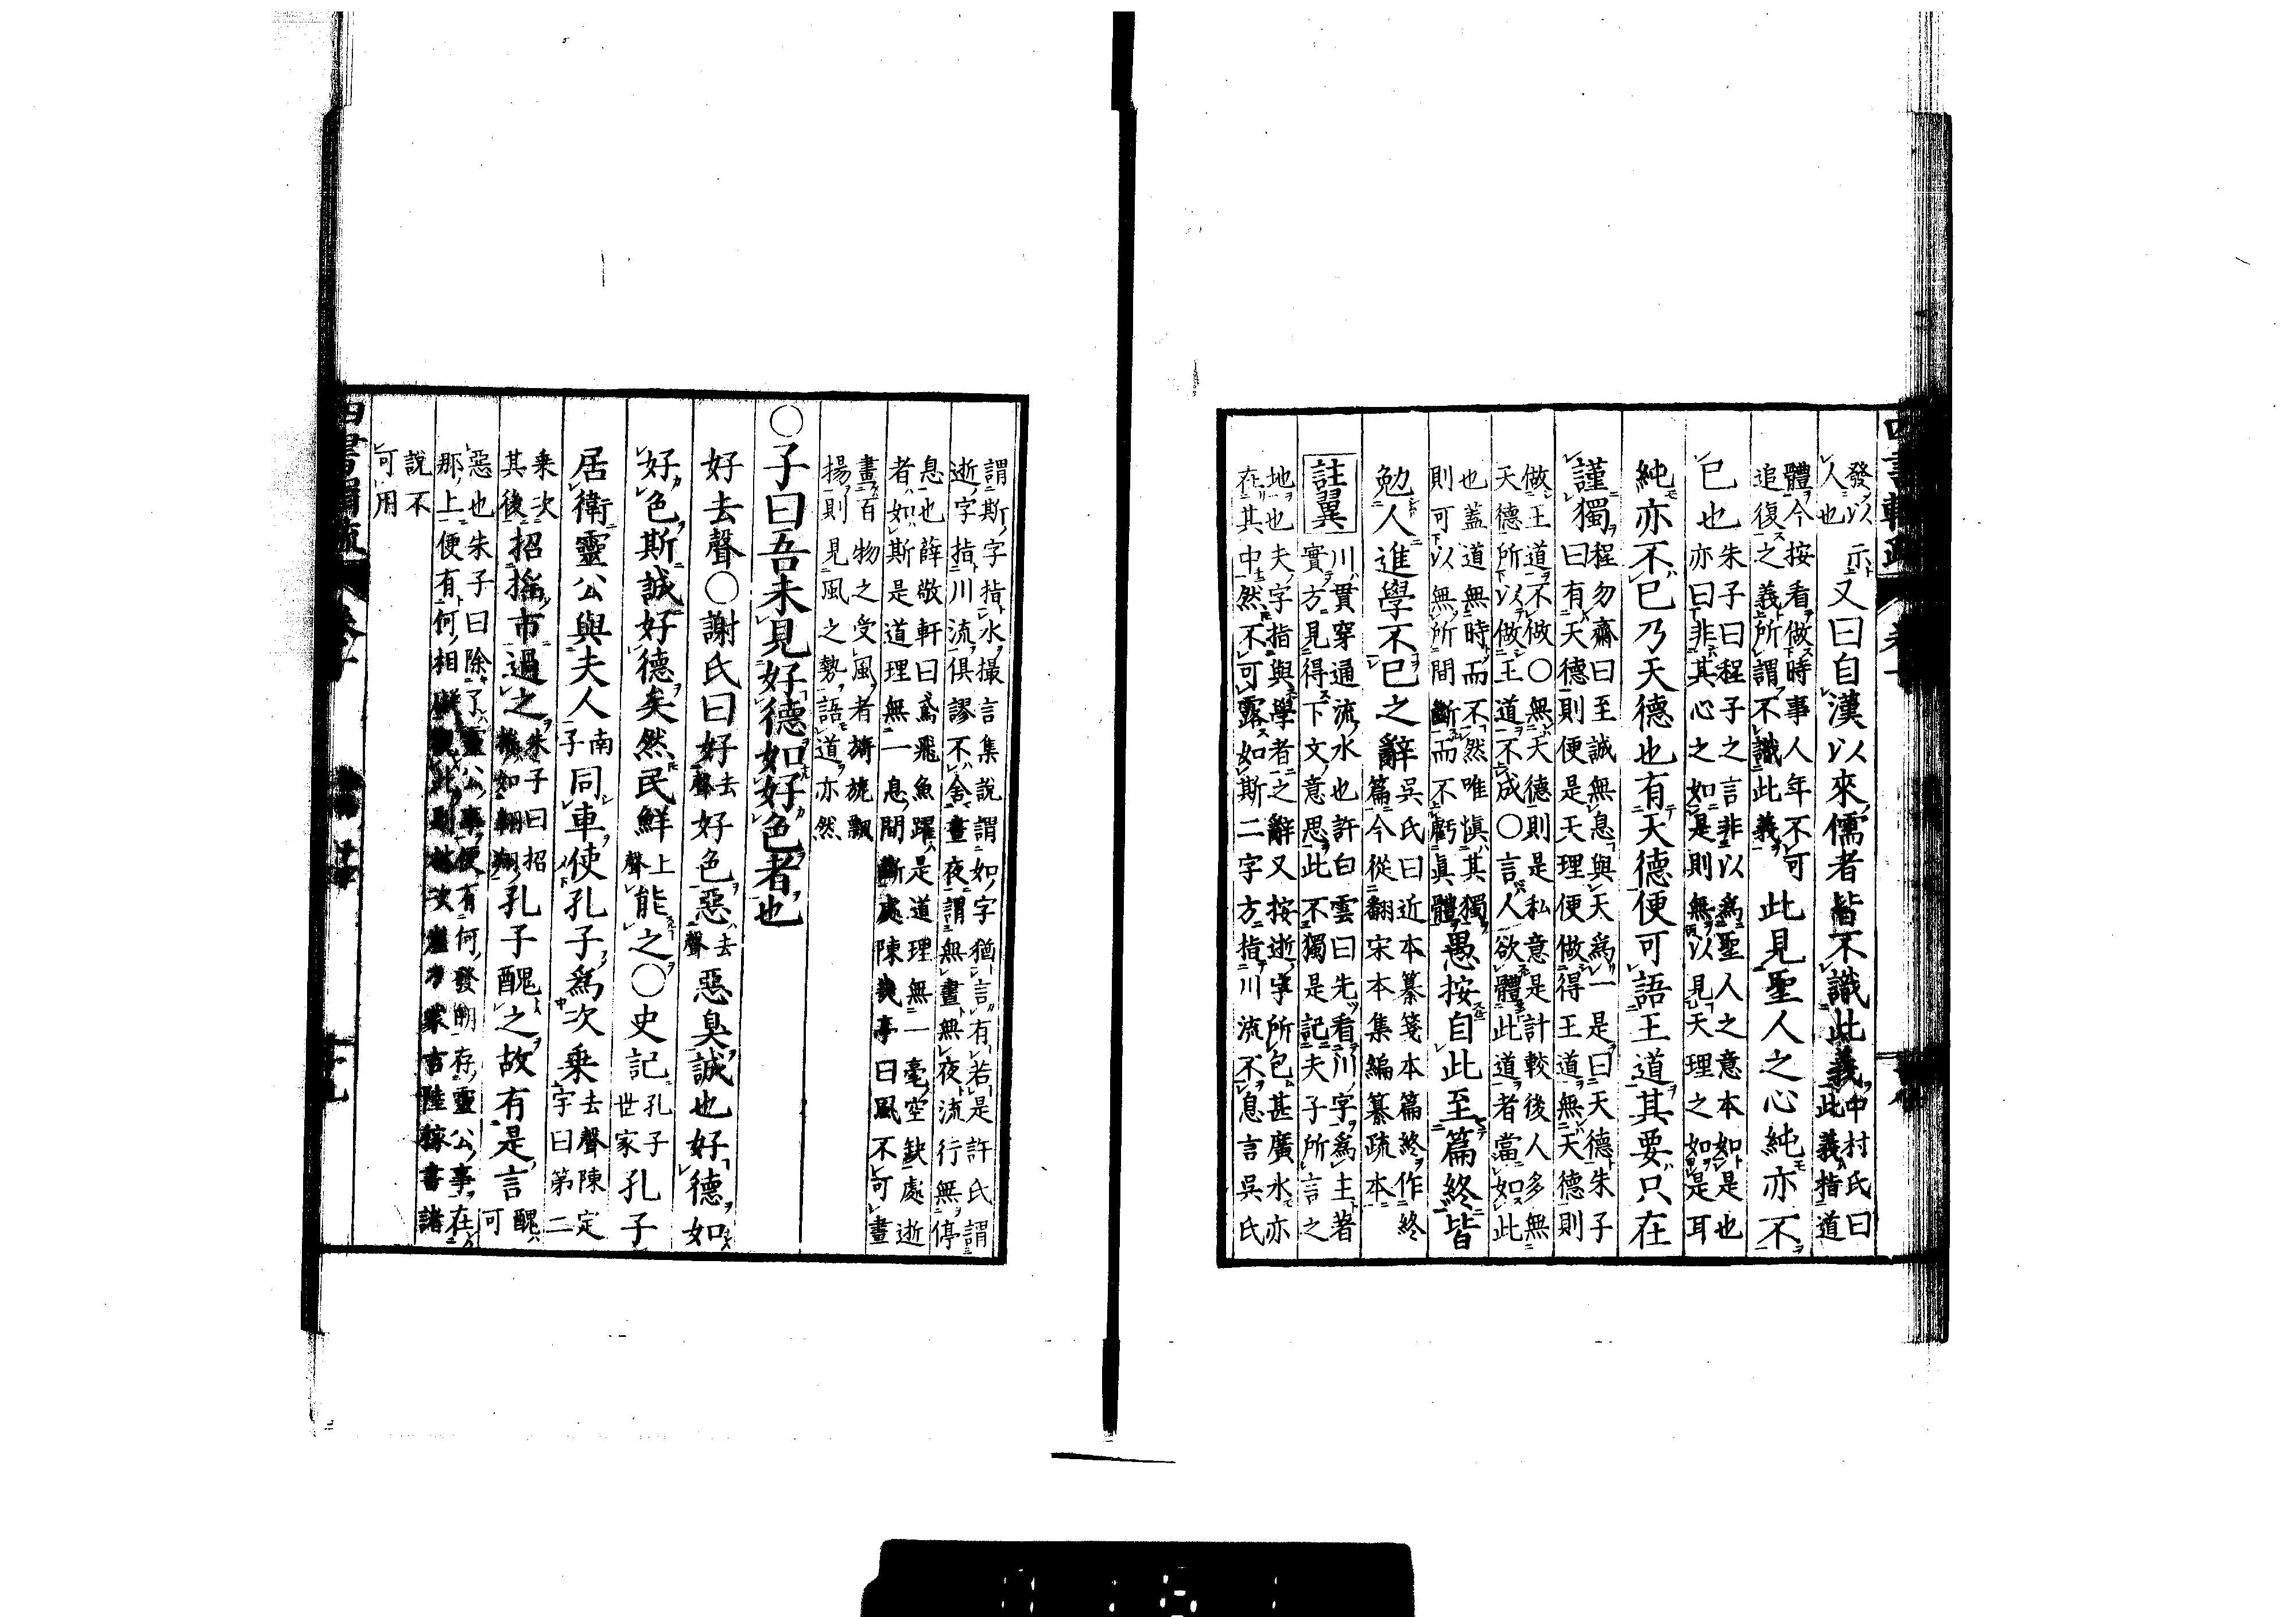 發以示
人也
又曰自漢以來儒者皆不識此義
中村氏曰
此義指道
體今按看做時事人年不可
追復之義所謂不識此義
此見聖人之心純亦不
已也
朱子曰程子之言非以為聖人之意本如是也
亦曰非其心之如是則無以見天理之如是耳
純亦不已乃天德也有天德便可語王道其要只在
謹獨
程勿齋曰至誠無息與天為一是曰天德朱子
曰有天德則便是天理便做得王道無天德則
做王道不做○無天德則是私意是計較後人多無
天德所以做王道不成○言人欲體此道者當如此
也蓋道無時而不然唯慎其獨
則可以無所間斷而不虧真體
愚按自此至篇終皆
勉人進學不已之辭
吳氏曰近本纂箋本篇終作終
篇今從翻宋本集編纂疏本
註翼
川貫穿通流水也許白雲曰先看川字為主著
實方見得下文意思此不獨是記夫子所言之
地也夫字指與學者之辭又按逝字所包甚廣水亦
在其中然不可露如斯二字方指川流不息言吳氏
謂斯字指水撮言集說謂如字猶言有若是許氏謂
逝字指川流俱謬不舍晝夜謂無晝無夜流行無停
息也薛敬軒曰鳶飛魚躍是道理無一毫空缺處逝
者如斯是道理無一息間斷處陳 亭曰風不可畫
畫百物之受風者旂旎飄
揚則見風之勢語道亦然
○子曰吾未見好德如好色者也
好去聲○謝氏曰好去聲好色惡去聲惡臭誠也好德如
好色斯誠好德矣然民鮮上聲能之○史記孔子世家孔子
居衛靈公與夫人南子同車使孔子為次乘
去聲陳定
宇曰第二
乘次
其後
招搖市過之
朱子曰招
搖如翱翔
孔子醜之故有是言
醜
可
惡也朱子曰除了靈公事便有何發明存靈公事在
那上便有何相 此 次 家 陸稼書諸
說不
可用